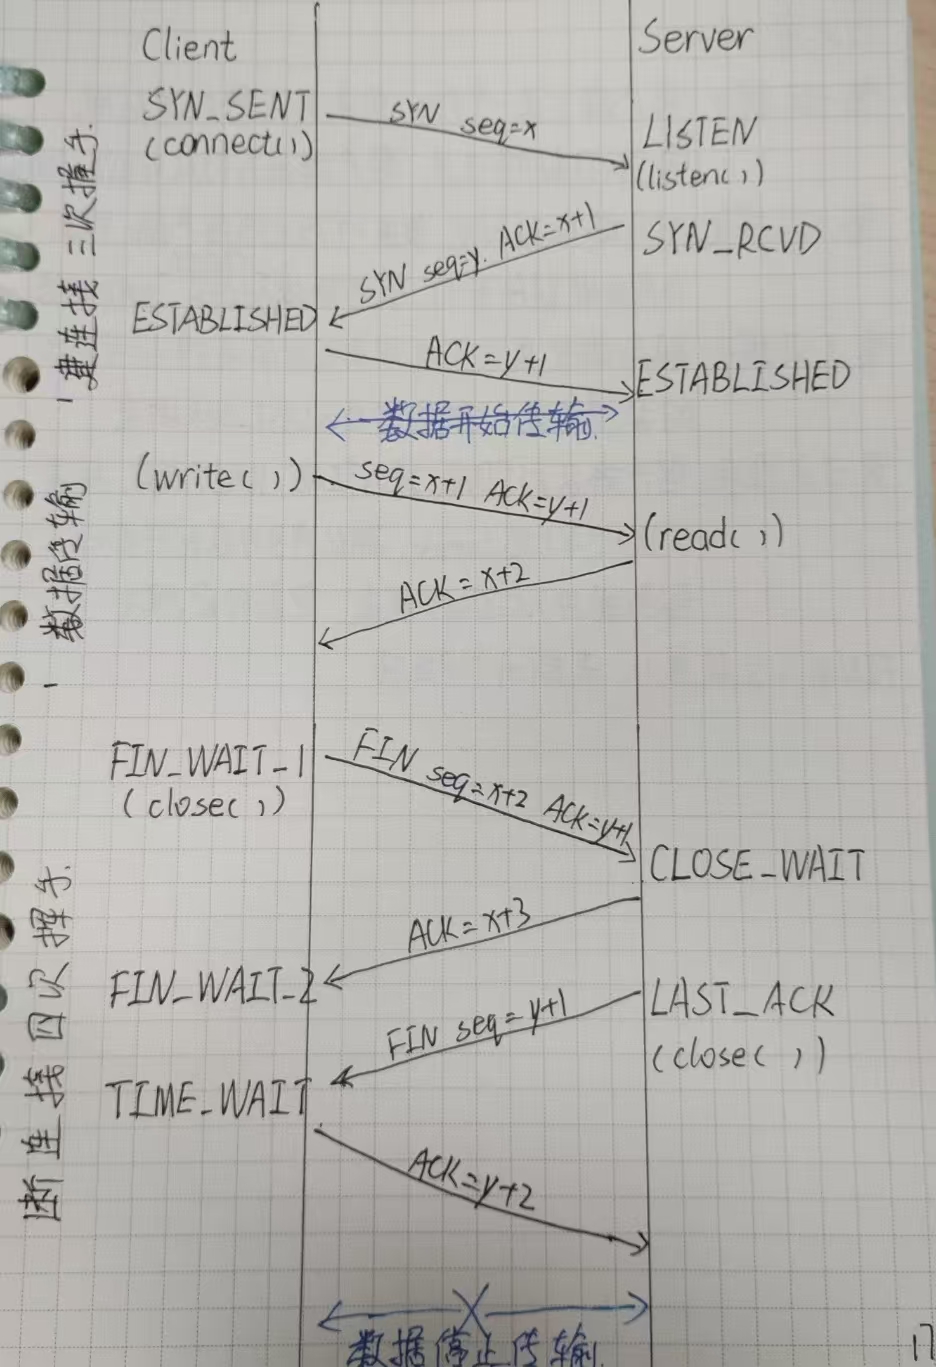 Client
Server
SYN_SENT
(connect(,)
SYN seq=x
LISTEN
(listen(,)
SYN_RCVD
SYN seq=y. ACK=x+1
ESTABLISHED
ACK=y+1
ESTABLISHED
数据开始传输.
(write(,)
seq=x+1 ACK=y+1
(read(,)
ACK=x+2
FIN_WAIT_1
(close(,)
FIN seq=x+2 ACK=y+1
CLOSE_WAIT
ACK=x+3
FIN_WAIT_2
LAST_ACK
(close(,))
FIN seq=y+1
TIME_WAIT
ACK=y+2
数据停止传输.
建连接 三次握手.
数据传输
断连接 四次挥手.
17